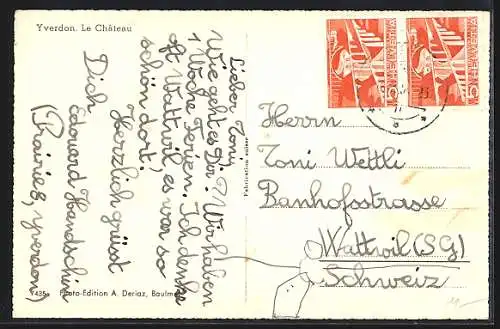 Yverdon. Le Château
Lieber Toni,
Wie geht es Dir? Wir haben
1 Woche Ferien. Ich denke
oft Wattwil, es war so
schön dort.
Herzlich grüsst
Dich
Edouard Handschin
(Prairie 8, Yverdon)
Fabrication suisse
HELVETIA
HELVETIA
5
5
Herrn
Toni Wettli
Banhofsstrasse
Wattwil (SG)
Schweiz
7435 Photo-Edition A. Deriaz, Baulmes